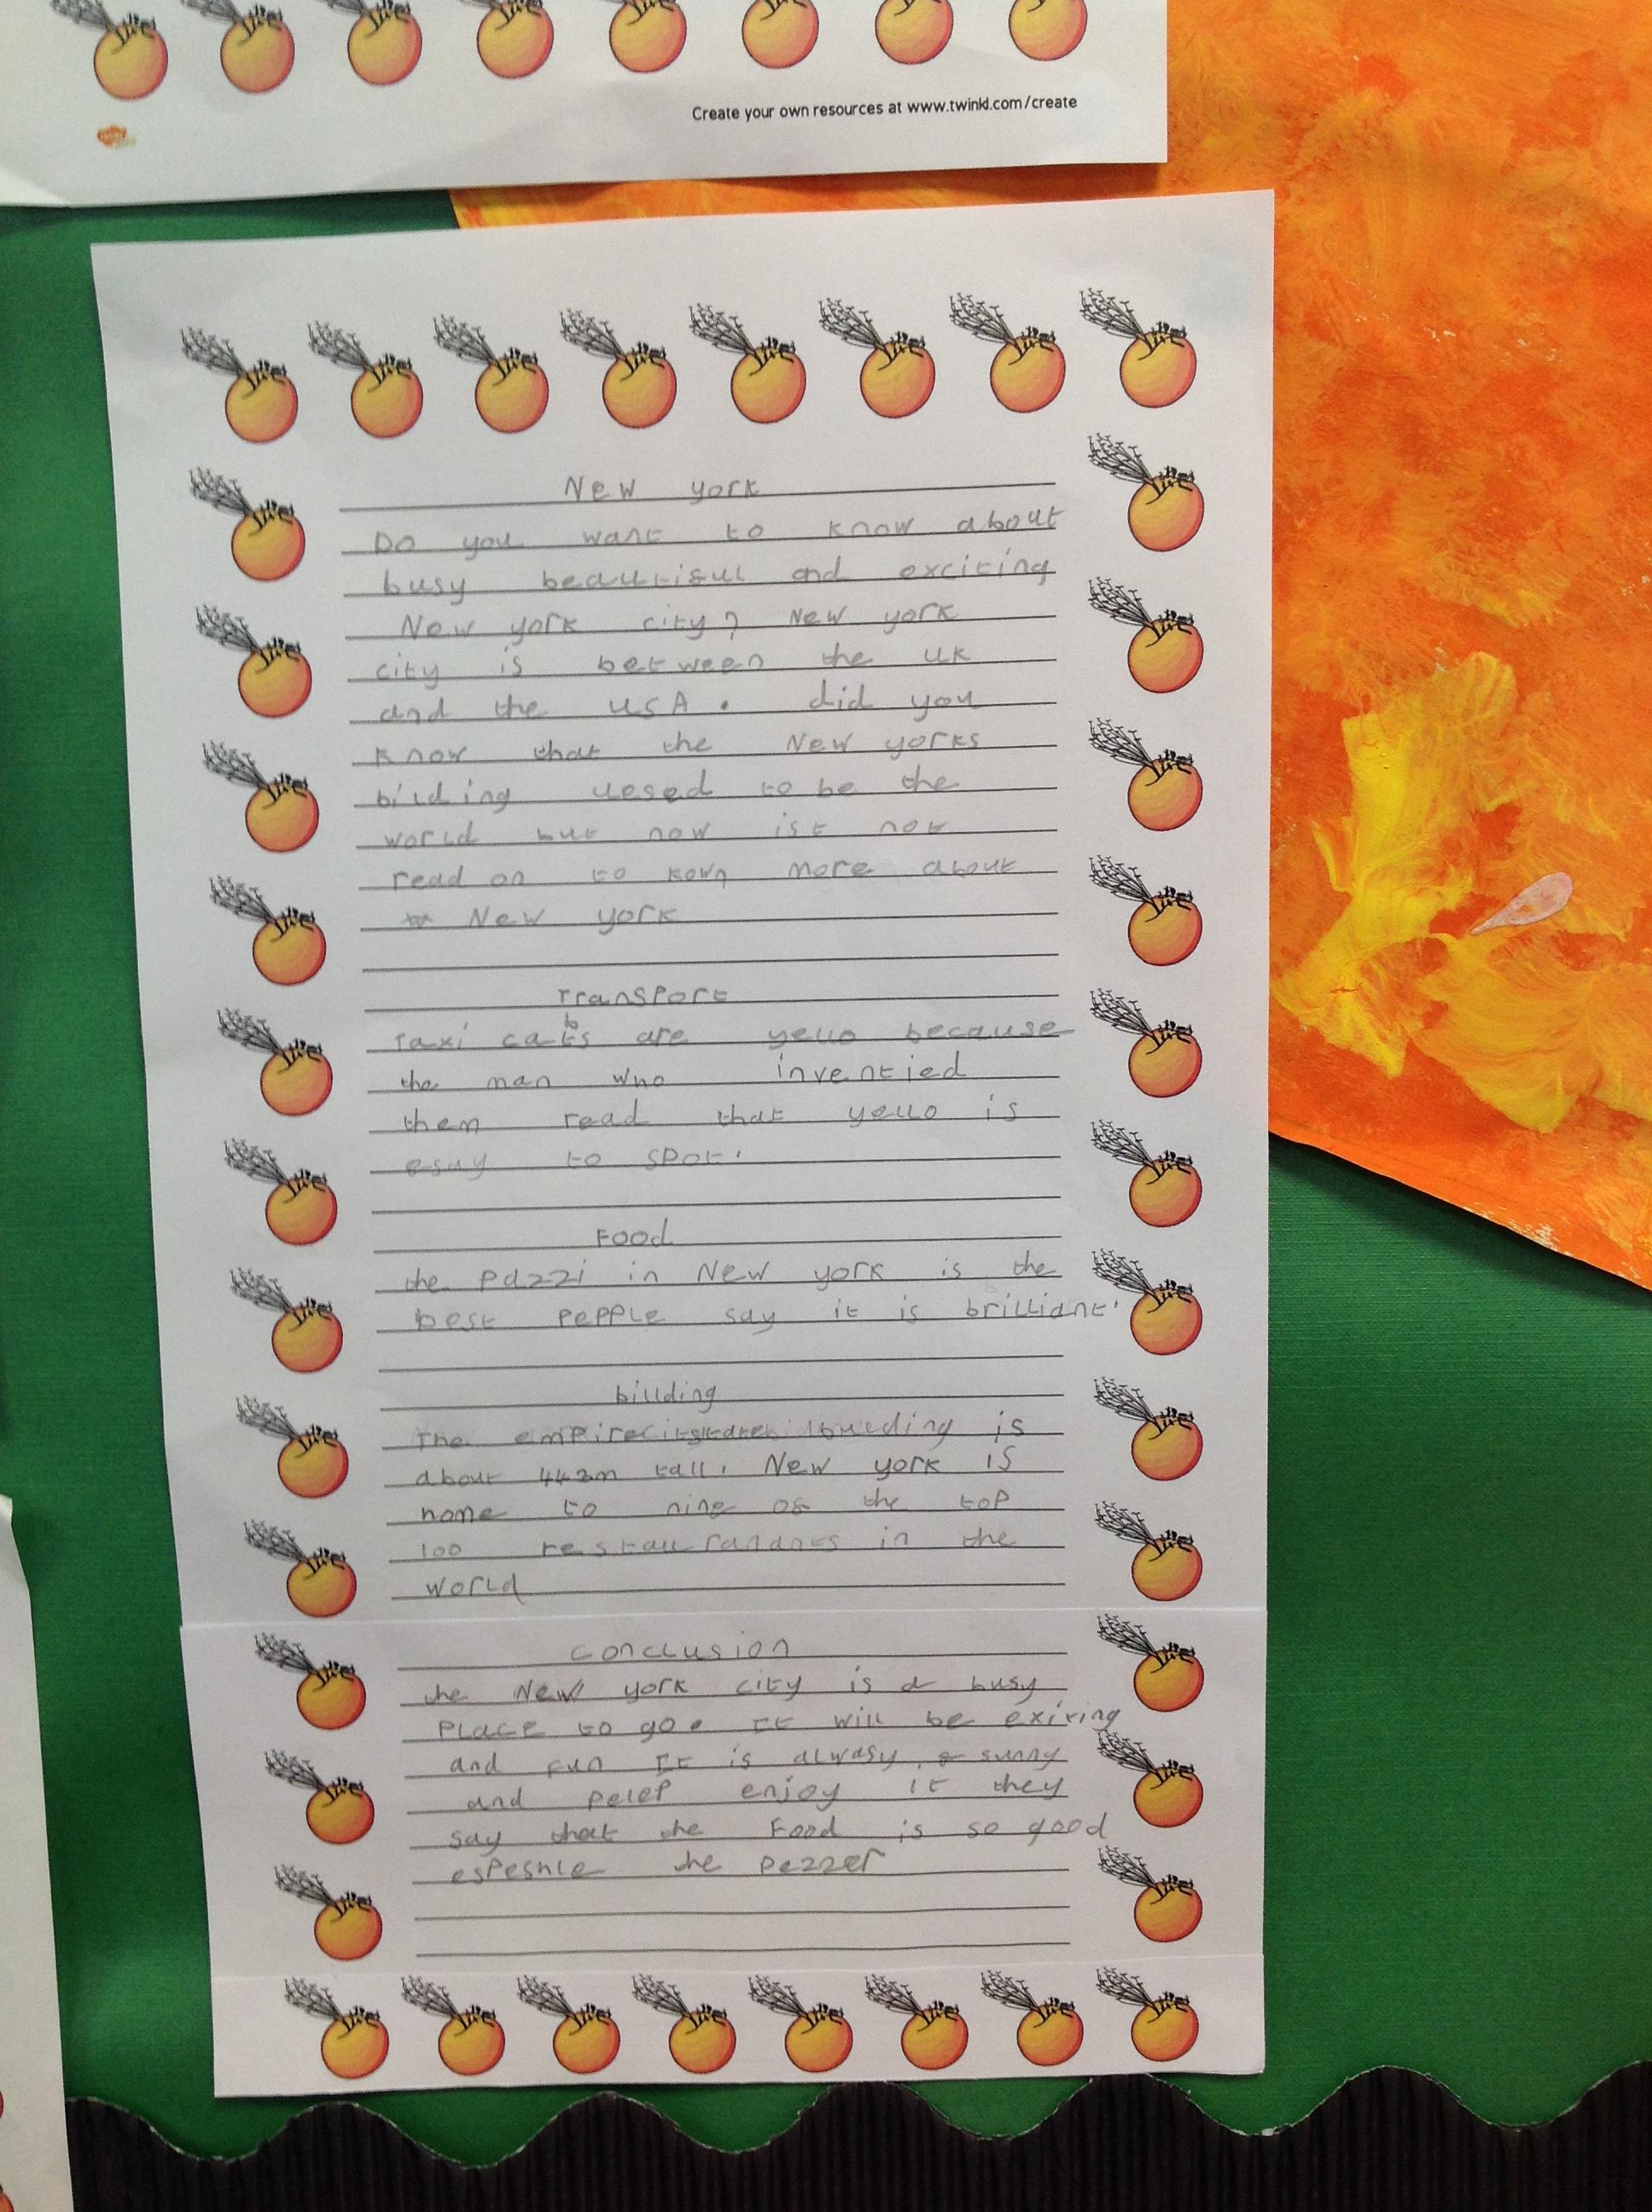 Create your own resources at www.twinkl.com/create
New york
Do you want to know about
busy beautiful and exciting
New york city? New york
city is between the UK
and the USA. did you
know that the New yorks
bilding uesed to be the
world but now ist not
read on to kown more about
New york
Transport
Taxi cabs are yello because
the man who inventied
them read that yello is
esay to spot.
Food
the pazzi in New york is the
best pepple say it is brilliant.
billding
The empire building is
about 442m tall. New york is
home to nine of the top
100 restaurandnts in the
world
conclusion
the New york city is a busy
place to go. It will be exiting
and fun It is alwasy sunny
and pelep enjoy it they
say that the Food is so good
espeshle the pezzer